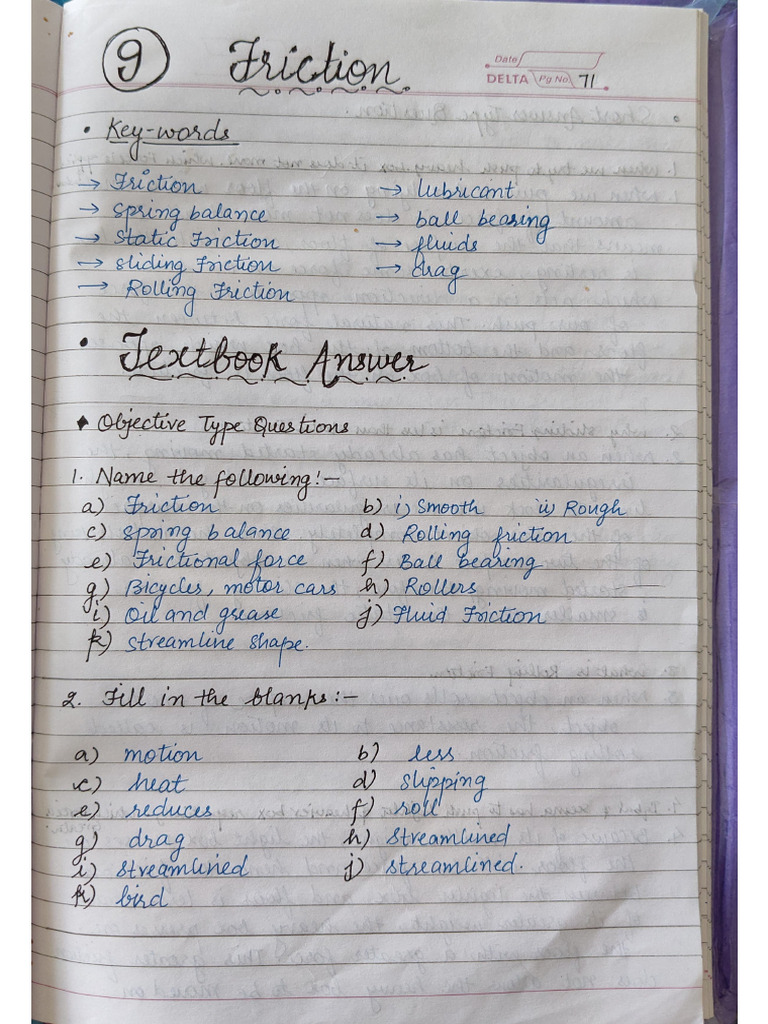 9 Friction
Date
DELTA Pg No. 71
• Key-words
→ Friction → lubricant
→ spring balance → ball bearing
→ Static Friction → fluids
→ sliding Friction → drag
→ Rolling Friction
• Textbook Answer
♦ Objective Type Questions
1. Name the following:-
a) Friction b) i) Smooth ii) Rough
c) spring balance d) Rolling friction
e) Frictional force f) Ball bearing
g) Bicycles, motor cars h) Rollers
i) Oil and grease j) Fluid Friction
k) streamline shape.
2. Fill in the blanks:-
a) motion b) less
c) heat d) slipping
e) reduces f) roll
g) drag h) streamlined
i) streamlined j) streamlined.
k) bird